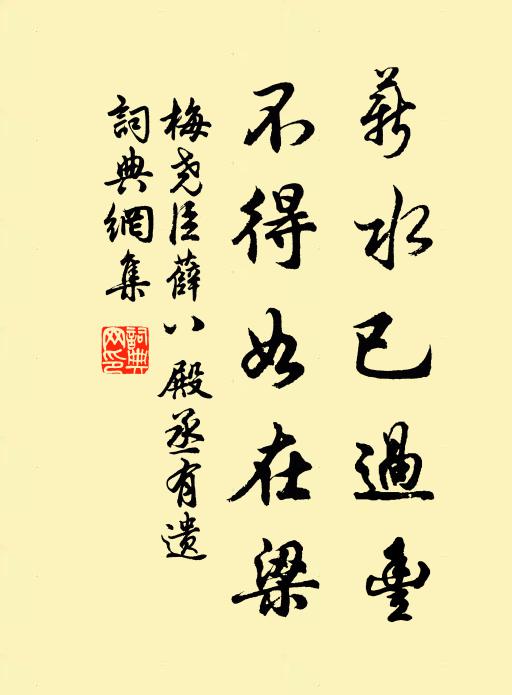 薪水已過豐
不得如在梁
梅尧臣薛八殿丞有遺
詞典網集
詞典网印